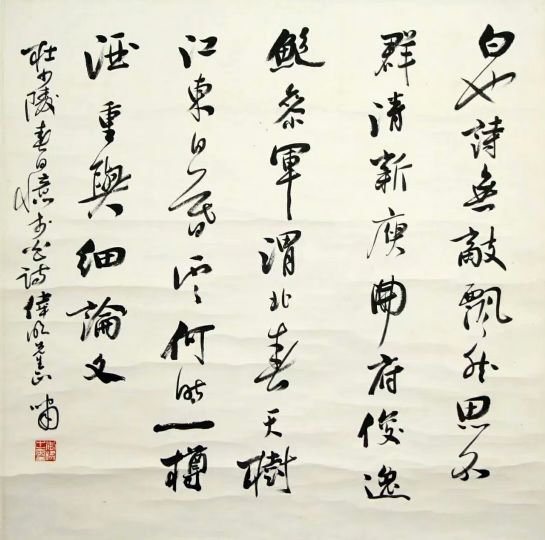 白也詩無敵飄然思不
群清新庾開府俊逸
鮑參軍渭北春天樹
江東日暮雲何時一樽
酒重與細論文
杜少陵春日憶李白詩偉兄正嘯